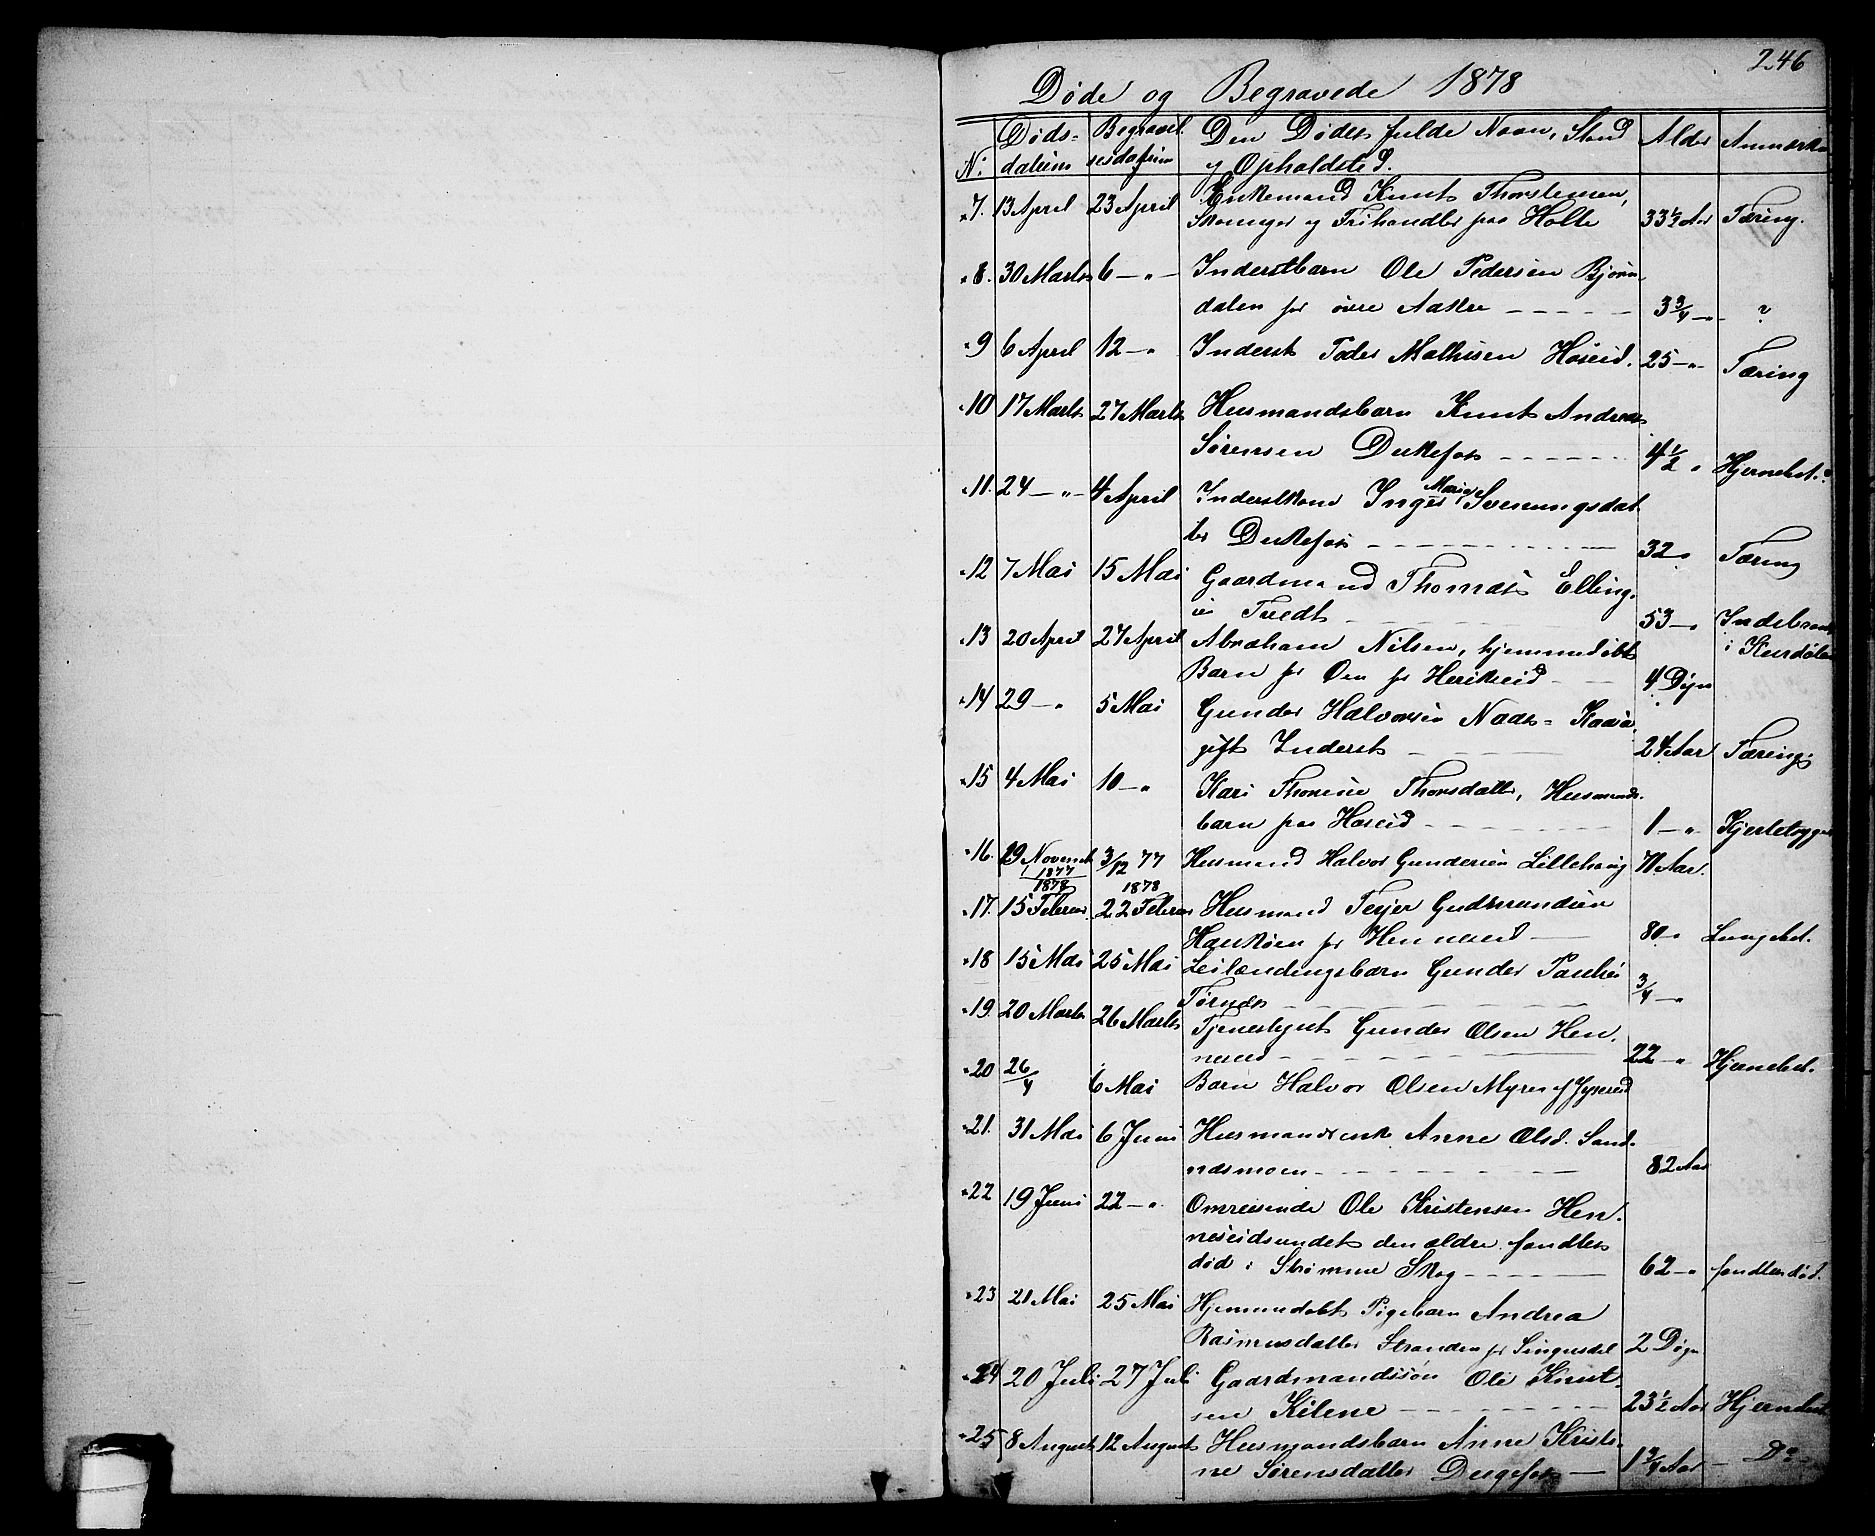 246
Døde og Begravede 1878
N: Døds-datum Begravelsesdatum Den Dødes fulde Navn, Stand og Opholdsted. Alder Anmærkn
7. 13 April 23 April Enkemand Knut Thorstensen,
Skomager og Frihandler paa Holte 33½ Aar Tæring.
8. 30 Marts 6 — " — Inderstbarn Ole Pedersen Bjørn-
dalen for øvre Aakre 3 3/4 — " — ?
9 6 April 12 — " Inderst Peder Mathisen Haseid. 25 — " — Tæring
10 17 Marts 27 Marts Husmandsbarn Knut Andreas
Sørensen Dukefos 4½ " Hjernebet.
11. 24 — " — 4 April Inderstkone Inger Marie Sveinungsdat
ter Dukefos 32 " Tæring
12 7 Mai 15 Mai Gaardmand Thomas Elling.
Tvedt 53 — " Indebrændt
i Kurdølen
13 20 April 27 April Abraham Nilsen, hjemmedøbt
Barn for Øen for Heriksei d 4 Døgn
14 29 — " 5 Mai Gunder Halvorsen Naas- Kaasa
gift Inderst 24 Aar Tæring
15 4 Mai 10 — " Kari Thorine Thorsdatter, Husmands.
barn paa Haseid 1 — " Hjertetrygge
16. 19 Novemb 1877 3/12 77 Husmand Halvor Gundersen Lillehaug 71 Aar.
1878 1878
17. 15 Februar 22 Februar Husmand Terjer Gudmundsen
Haukøen for Henneseid 80 " Lungebet.
18 15 Mai 25 Mai Leilændingsbarn Gunder Paulsen
Tørnes 3/4 — "
19. 20 Marts 26 Marts Tjenestejent Gunder Olsen Hen.
neseid 22 — " Hjernebet.
20 26/4 6 Mai Barn Halvor Olsen Myren af Jyrseid
21. 31 Mai 6 Juni Husmandsenk. Anne Olsd. Sand-
næsmoen 82 Aar
22 19 Juni 22 — " Omreisende Ole Kristensen Hen.
neseidsundet den ældre. fandtes
død i Strømme Skog 62 — " fandtes død.
23 21 Mai 25 Mai Hjemmedøbt Pigebarn Andrea
Rasmusdatter Stranden for Singusdal 2 Døgn
24 20 Juli 27 Juli Gaardmandssøn Ole Knut-
sen Kilene 23½ Aar Hjernebet
25 8 August 12 August Husmandsbarn Anne Kristi-
ne Sørensdatter Dugefos 1 3/4 Aar — Do